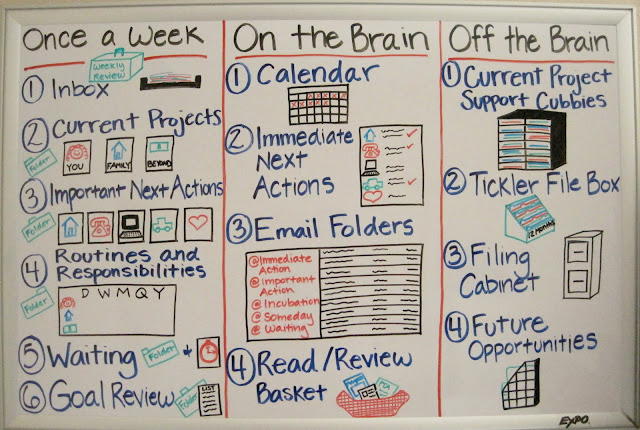 Once a Week
Weekly
Review
① Inbox
② Current Projects
Folder
YOU
FAMILY
BEYOND
③ Important Next Actions
Folder
④ Routines and
Responsibilities
Folder
D W M Q Y
⑤ Waiting
Folder
+
⑥ Goal Review
Folder
LIST
On the Brain
① Calendar
② Immediate
Next
Actions
③ Email Folders
@Immediate
Action
@Important
Action
@Incubation
@Someday
@Waiting
④ Read/Review
Basket
Off the Brain
① Current Project
Support Cubbies
② Tickler File Box
12 MONTHS
③ Filing
Cabinet
④ Future
Opportunities
EXPO